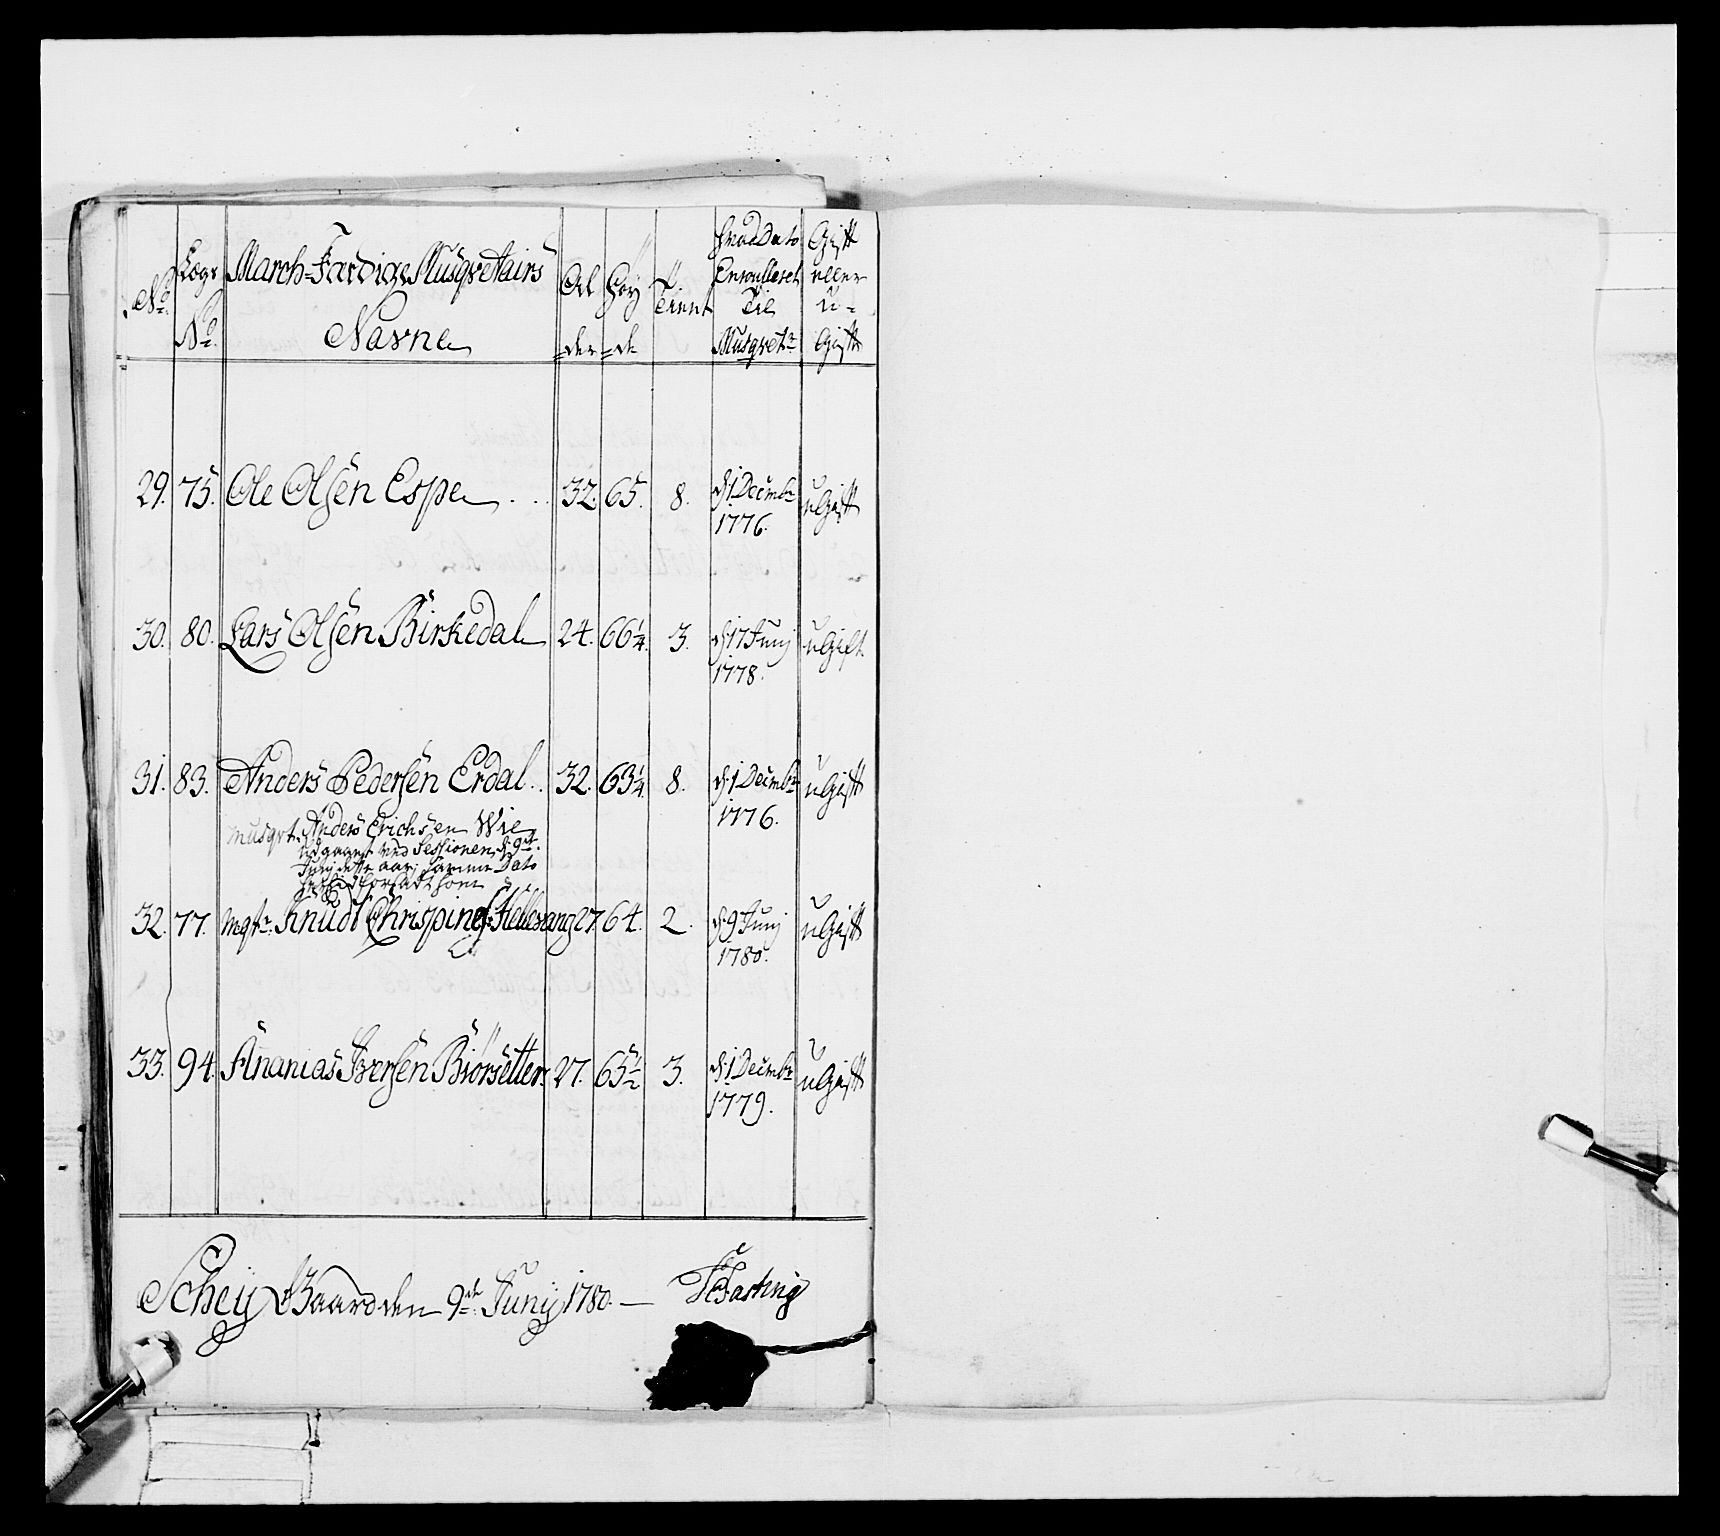 No. Lægs No. March-Færdige Musqvetairs Navne Al=der Høy=de Tient Hvad Dato Enroulleret Til Musqvetr. Gift eller u-Gift
29. 75. Ole Olsen Espe 32. 65. 8. d. 1 Decembr 1776. uGift
30. 80. Lars Olsen Birkedal 24. 66¼. 3. d. 17 Junij 1778. uGift
31. 83. Anders Pedersen Erdal 32. 63¼. 8. d. 1 Decembr 1776. uGift
Musqrt. Anders Erichsen Wie
udgaaet ved Sessionen d. 9de
Junij dette aar, samme Dato
32. 77. Mqtr. Knudt Chrispines: Hellevang 27. 64. 2. d. 9 Junij 1780. uGift
33. 94. Ananias Iversen Biørsetter 27. 65½ 3. d. 1 Decembr 1779. uGift
Schey Gaard den 9de Junij 1780. — Fasting